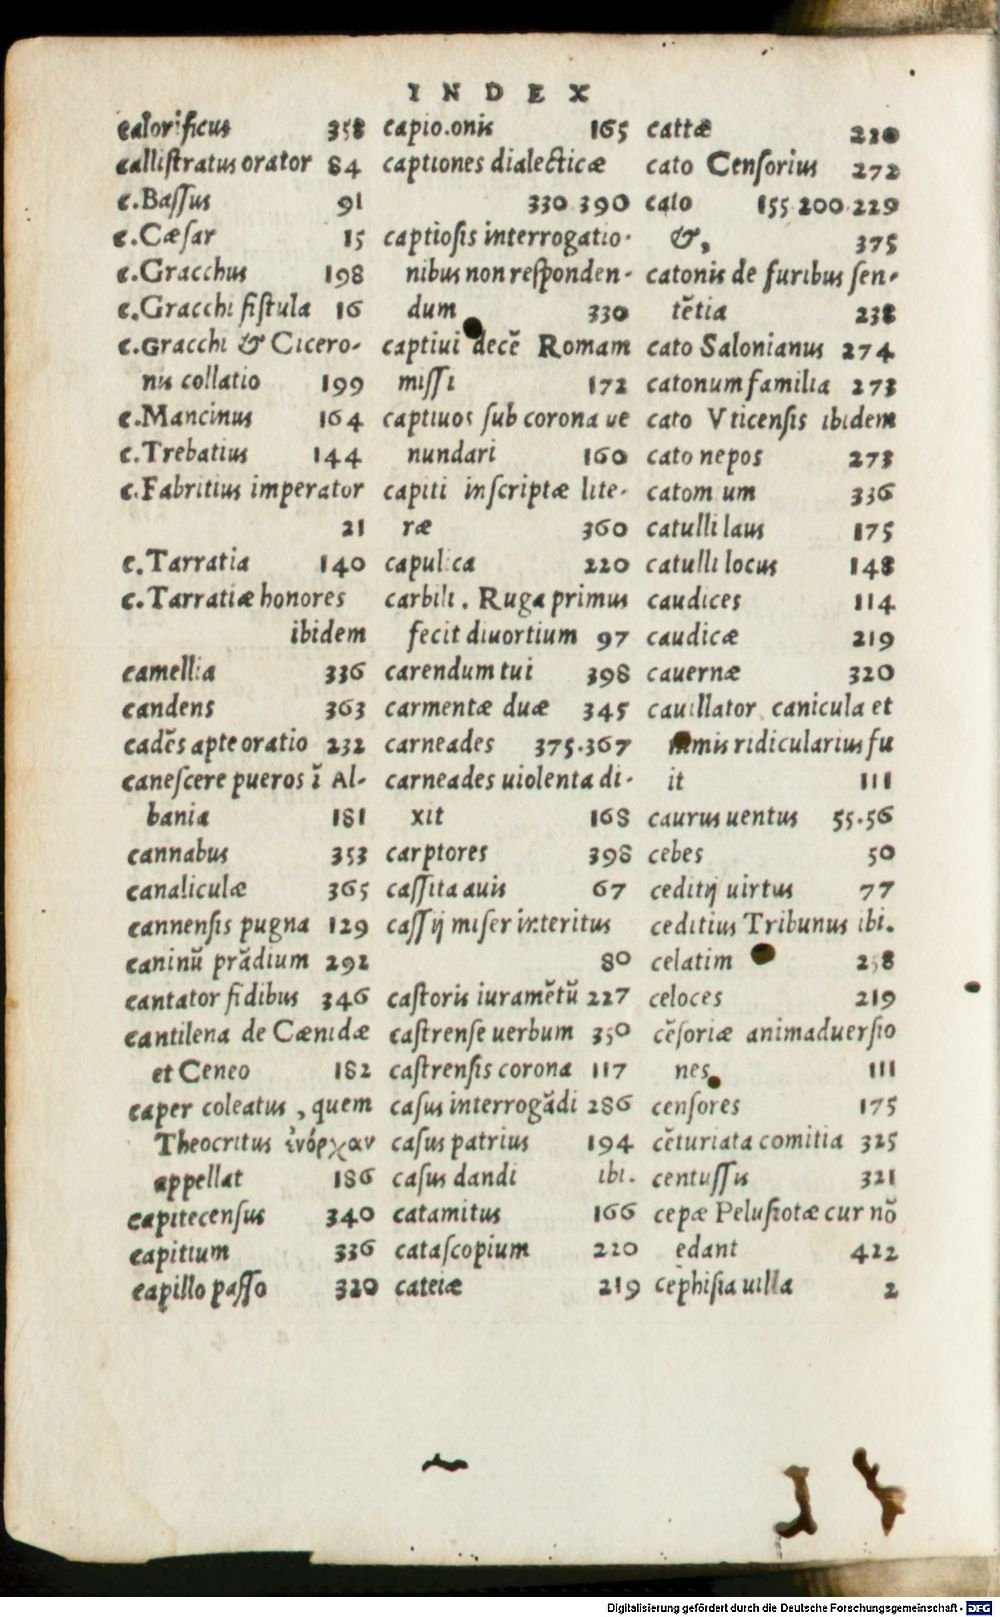 INDEX
calorificus 358
callistratus orator 84
c.Bassus 91
c.Cæsar 15
c.Gracchus 198
c.Gracchi fistula 16
c.Gracchi & Cicero-
nis collatio 199
c.Mancinus 164
c.Trebatius 144
c.Fabritius imperator
21
c.Tarratia 140
c.Tarratiæ honores
ibidem
camellia 336
candens 363
cadẽs apte oratio 232
canescere pueros ĩ Al-
bania 181
cannabus 353
canaliculæ 365
cannensis pugna 129
caninũ prãdium 292
cantator fidibus 346
cantilena de Cænidæ
et Ceneo 182
caper coleatus , quem
Theocritus ἐνόρχαν
appellat 186
capitecensus 340
capitium 336
capillo passo 320
capio.onis 165
captiones dialecticæ
330 390
captiosis interrogatio-
nibus non responden-
dum 330
captiui decẽ Romam
missi 172
captiuos sub corona ue
nundari 160
capiti inscriptæ lite-
ræ 360
capulica 220
carbili. Ruga primus
fecit diuortium 97
carendum tui 398
carmentæ duæ 345
carneades 375.367
carneades uiolenta di-
xit 168
carptores 398
cassita auis 67
cassij miser interitus
80
castoris iuramẽtũ 227
castrense uerbum 350
castrensis corona 117
casus interrogãdi 286
casus patrius 194
casus dandi ibi.
catamitus 166
catascopium 220
cateiæ 219
cattæ 220
cato Censorius 272
cato 155 200.229
&, 375
catonis de furibus sen-
tẽtia 238
cato Salonianus 274
catonum familia 273
cato Vticensis ibidem
cato nepos 273
catom um 336
catulli laus 175
catulli locus 148
caudices 114
caudicæ 219
cauernæ 320
cauillator canicula et
nimis ridicularius fu
it 111
caurus uentus 55.56
cebes 50
ceditij uirtus 77
ceditius Tribunus ibi.
celatim 258
celoces 219
cẽsoriæ animaduersio
nes 111
censores 175
cẽturiata comitia 325
centussis 321
cepæ Pelusiotæ cur nõ
edant 422
cephisia uilla 2
Digitalisierung gefördert durch die Deutsche Forschungsgemeinschaft - DFG